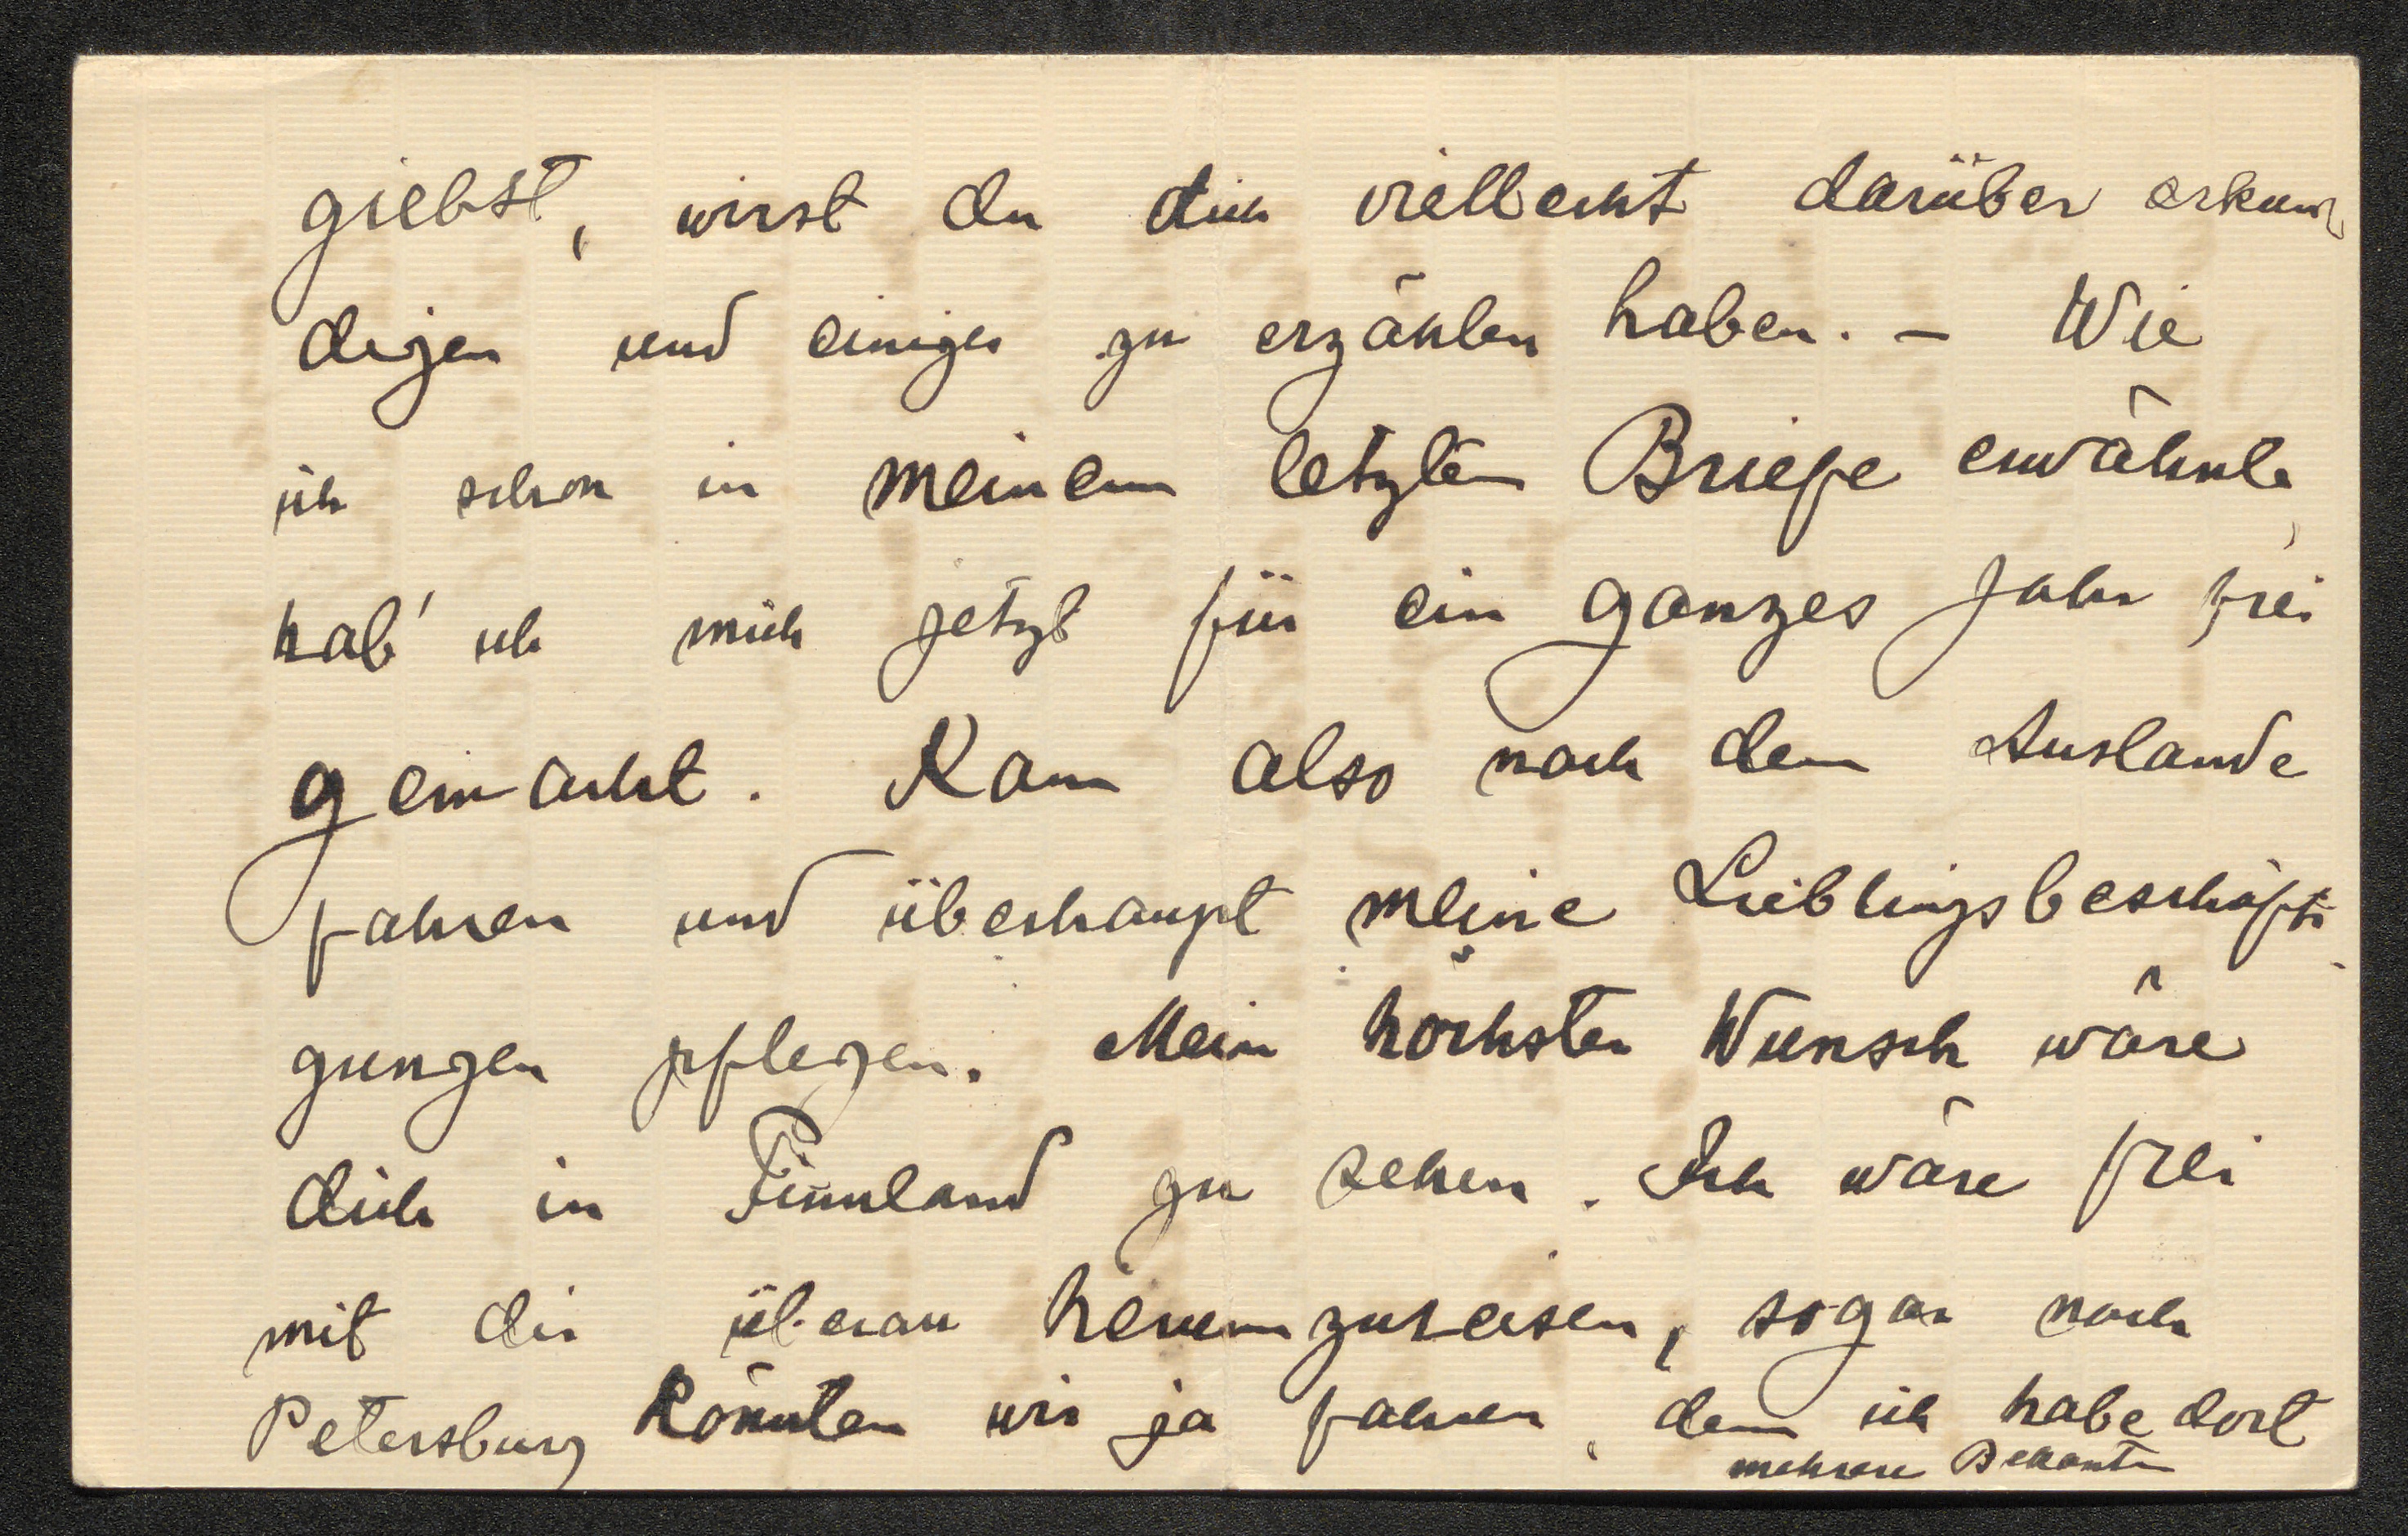 giebst, wirst du dich vielleicht darüber erkun-
digen und einiges zu erzählen haben. – Wie
ich schon in meinem letzten Briefe erwähnte,
hab' ich mich jetzt für ein ganzes Jahr frei
gemacht. Kann also nach dem Auslande
fahren und überhaupt meine Lieblingsbeschäfti-
gungen pflegen. Mein höchster Wunsch wäre
dich in Finnland zu sehen. Ich wäre frei
mit dir überall herumzureisen, sogar nach
Petersburg könnten wir ja fahren, denn ich habe dort
mehrere Bekannte